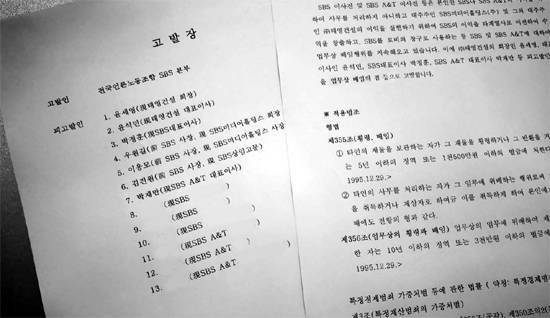 고 발 장
고발인 전국언론노동조합 SBS 본부
피고발인 1. 윤세영(現태영건설 회장)
2. 윤석민(現태영건설 대표이사)
3. 박정훈(現SBS대표이사)
4. 우원길(前 SBS 사장, 現 SBS미디어홀딩스 회장
5. 이웅모(前 SBS 사장, 現 SBS미디어홀딩스 사장
6. 김진원(前 SBS 사장, 現 SBS상임고문)
7. 박재만(現SBS A&T 대표이사)
8. (現SBS )
9. (現SBS )
10. (現SBS )
11. (現SBS A&T )
12. (現SBS A&T )
13. (現SBS A&T
SBS 이사진 및 SBS A&T 이사진 등은 본인인 SBS나 SBS A&T
하여 사무를 처리하지 아니하고 대주주인 SBS미디어홀딩스(주) 및 그의 대주주
인 ㈜태영건설의 이익을 실현하기 위하여 SBS의 이익을 타계열사로 이전하여 수
익을 창출하고, SBS를 토피와 창구로 사용하는 등 SBS 및 SBS A&T에 대하여
업무상 배임행위를 지속해오고 있습니다. 이에 ㈜태영건설의 회장인 윤세영, 대표
이사인 윤석민, SBS대표이사 박정훈, SBS A&T 대표이사 박재만 등 피고발인
을 업무상 배임의 점 등으로 고발합니다.
※ 적용법조
형법
제355조(횡령, 배임)
① 타인의 재물을 보관하는 자가 그 재물을 횡령하거나 그 반환을 거
는 5년 이하의 징역 또는 1천500만원 이하의 벌금에 처한다
1995.12.29.>
② 타인의 사무를 처리하는 자가 그 임무에 위배하는 행위로써 재
을 취득하거나 제삼자로 하여금 이를 취득하게 하여 본인에
때에도 전항의 형과 같다.
제356조(업무상의 횡령과 배임) 업무상의 임무에 위배하여 제
한 자는 10년 이하의 징역 또는 3천만원 이하의 벌금에
1995.12.29.>
특정경제범죄 가중처벌 등에 관한 법률 ( 약칭: 특정경제범
제3조(특정재산범죄의 가중처벌)
제350조의2